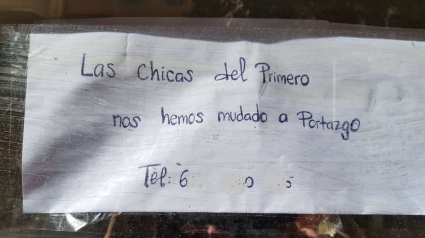 Las chicas del Primero
nos hemos mudado a Portazgo
Tél: 6 0 5